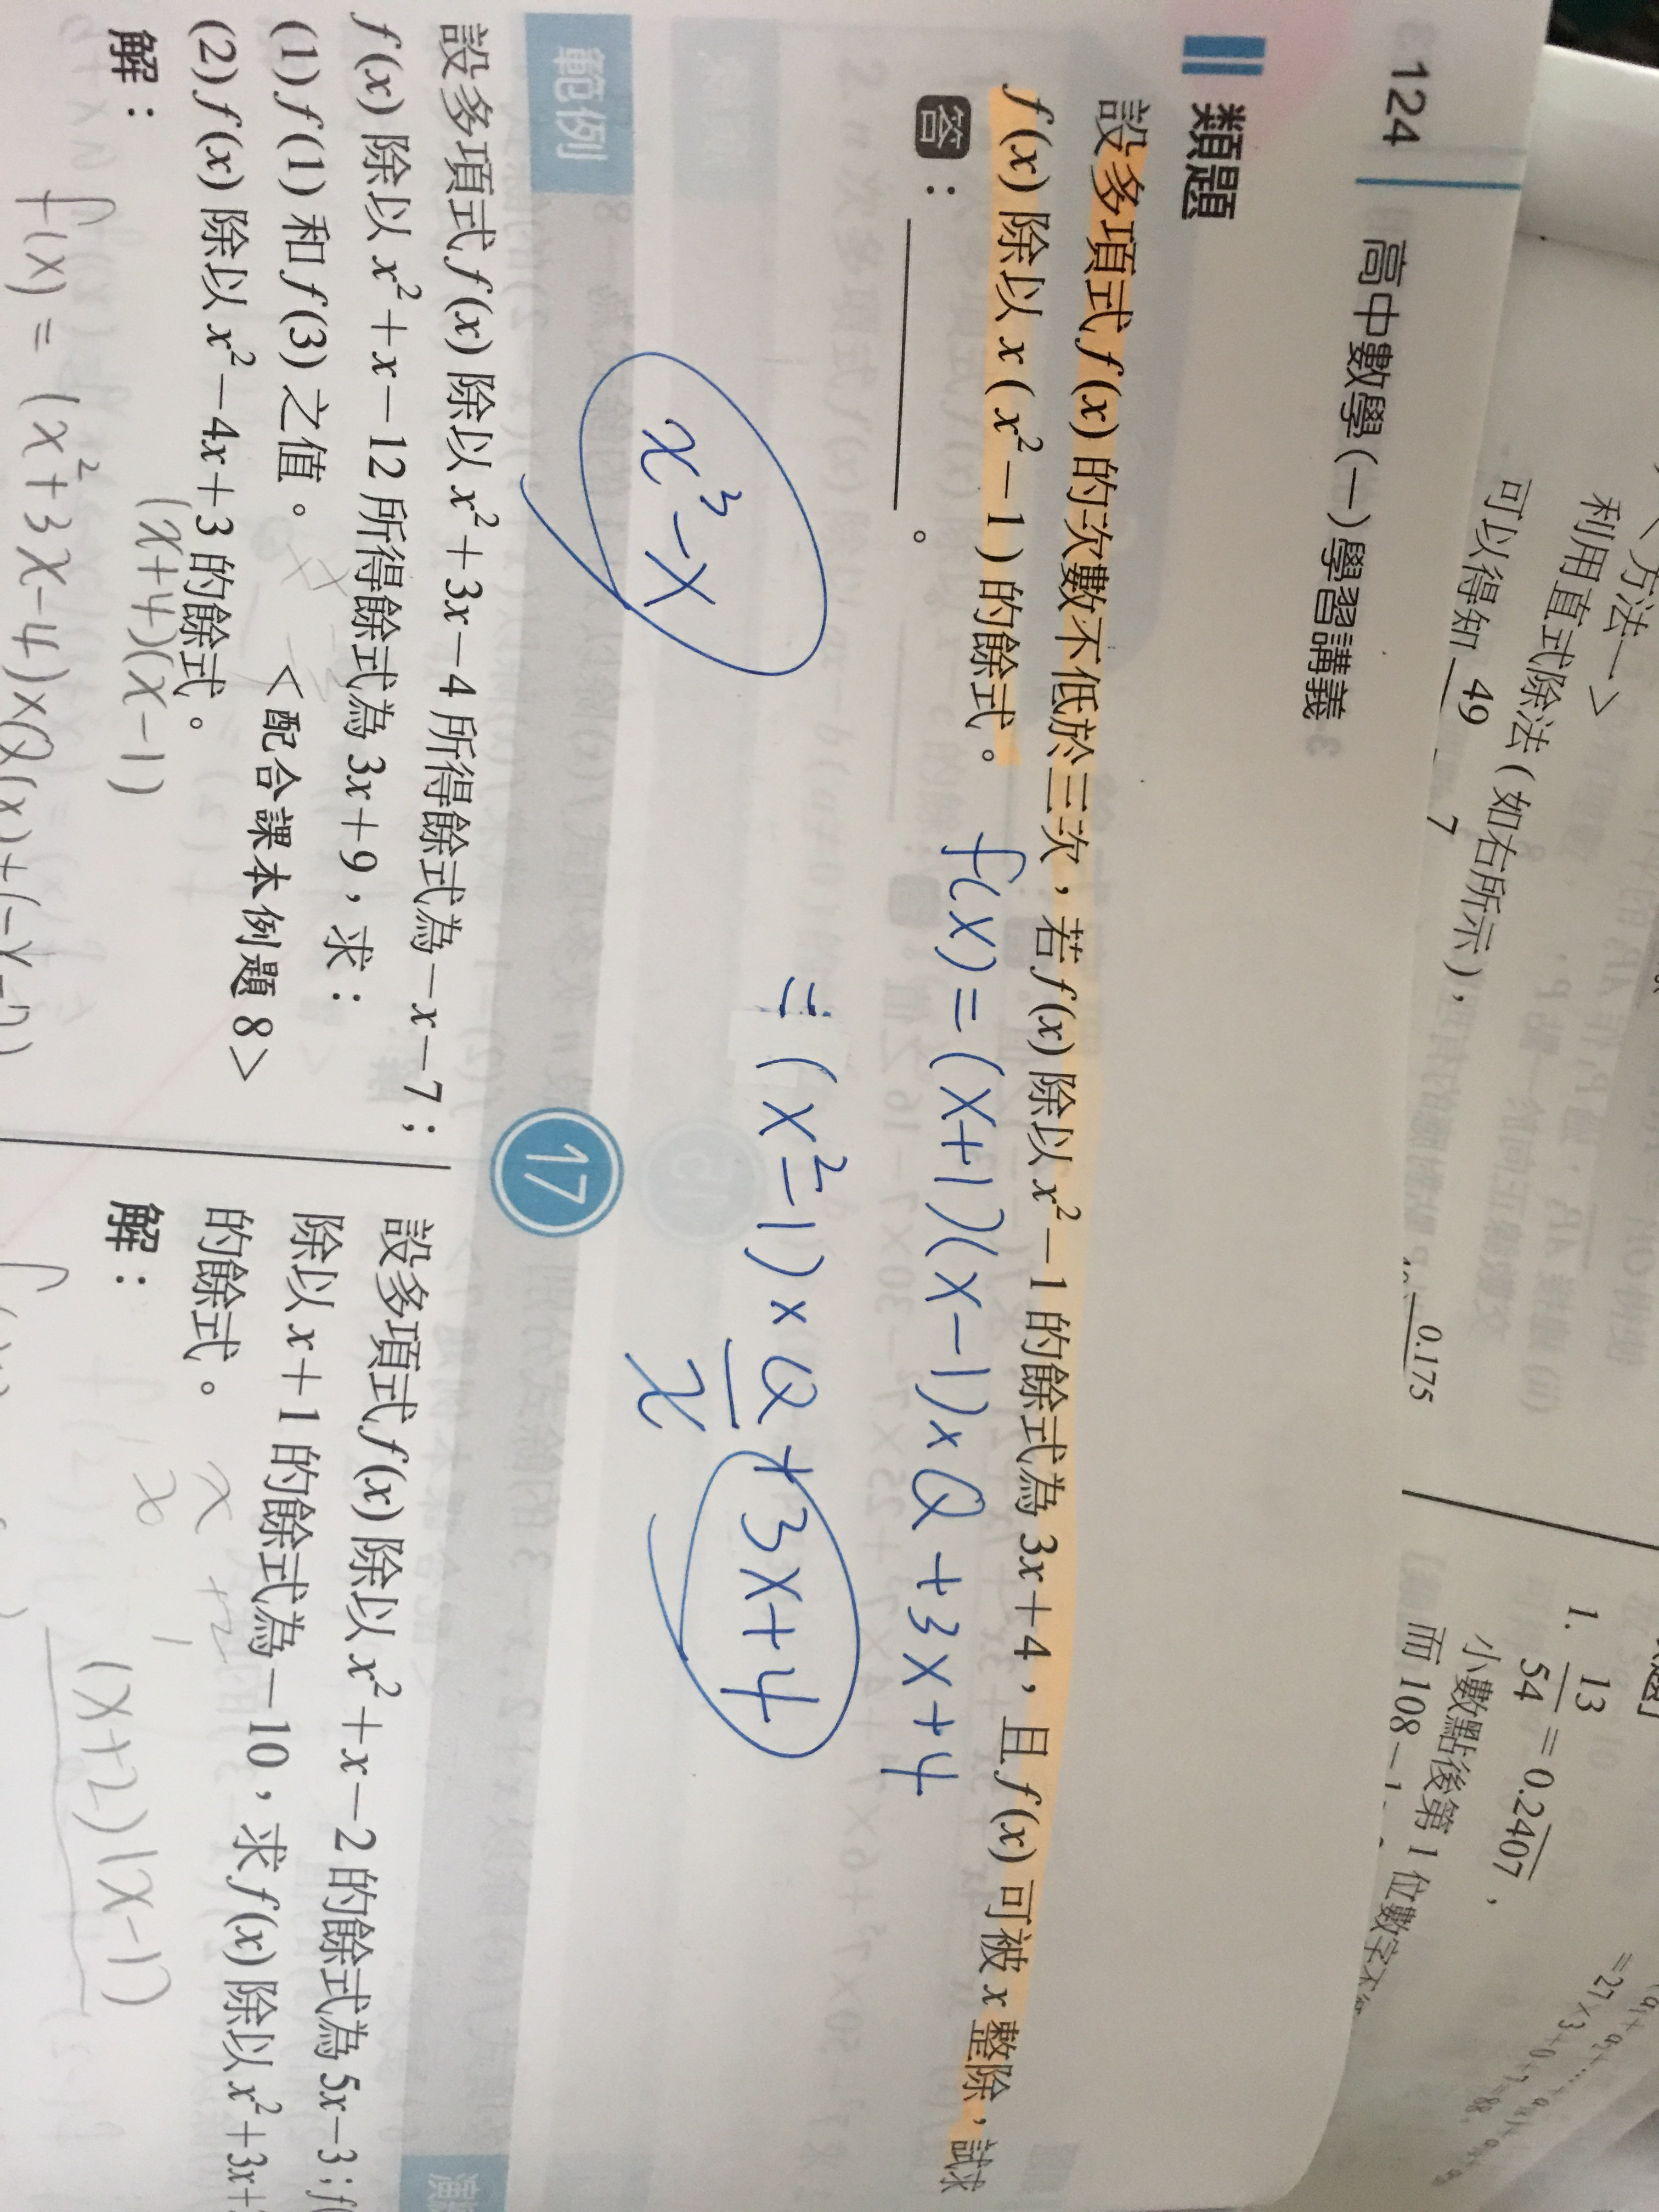 <方法一>
利用直式除法(如右所示),
可以得知 49
7
0.175
1. 13/54 = 0.2407,
小數點後第 1 位數字不
而 108 - 1
124 高中數學(一)學習講義
類題
設多項式 f(x) 的次數不低於三次,若 f(x) 除以 x²-1 的餘式為 3x+4,且 f(x) 可被 x 整除,試求
f(x) 除以 x(x²-1) 的餘式。
答:。
f(x)=(x+1)(x-1)×Q+3x+4
=(x²-1)×Q+3x+4
x
x³-x
範例
17
設多項式 f(x) 除以 x²+3x-4 所得餘式為 -x-7;
f(x) 除以 x²+x-12 所得餘式為 3x+9,求:
(1) f(1) 和 f(3) 之值。
<配合課本例題 8>
(2) f(x) 除以 x²-4x+3 的餘式。
解:
(x+4)(x-1)
f(x)=(x²+3x-4)×Q(x)+(-x-7)
設多項式 f(x) 除以 x²+x-2 的餘式為 5x-3;f(
除以 x+1 的餘式為 -10,求 f(x) 除以 x²+3x+
的餘式。
解:
x +2
x 1
(x+2)(x-1)